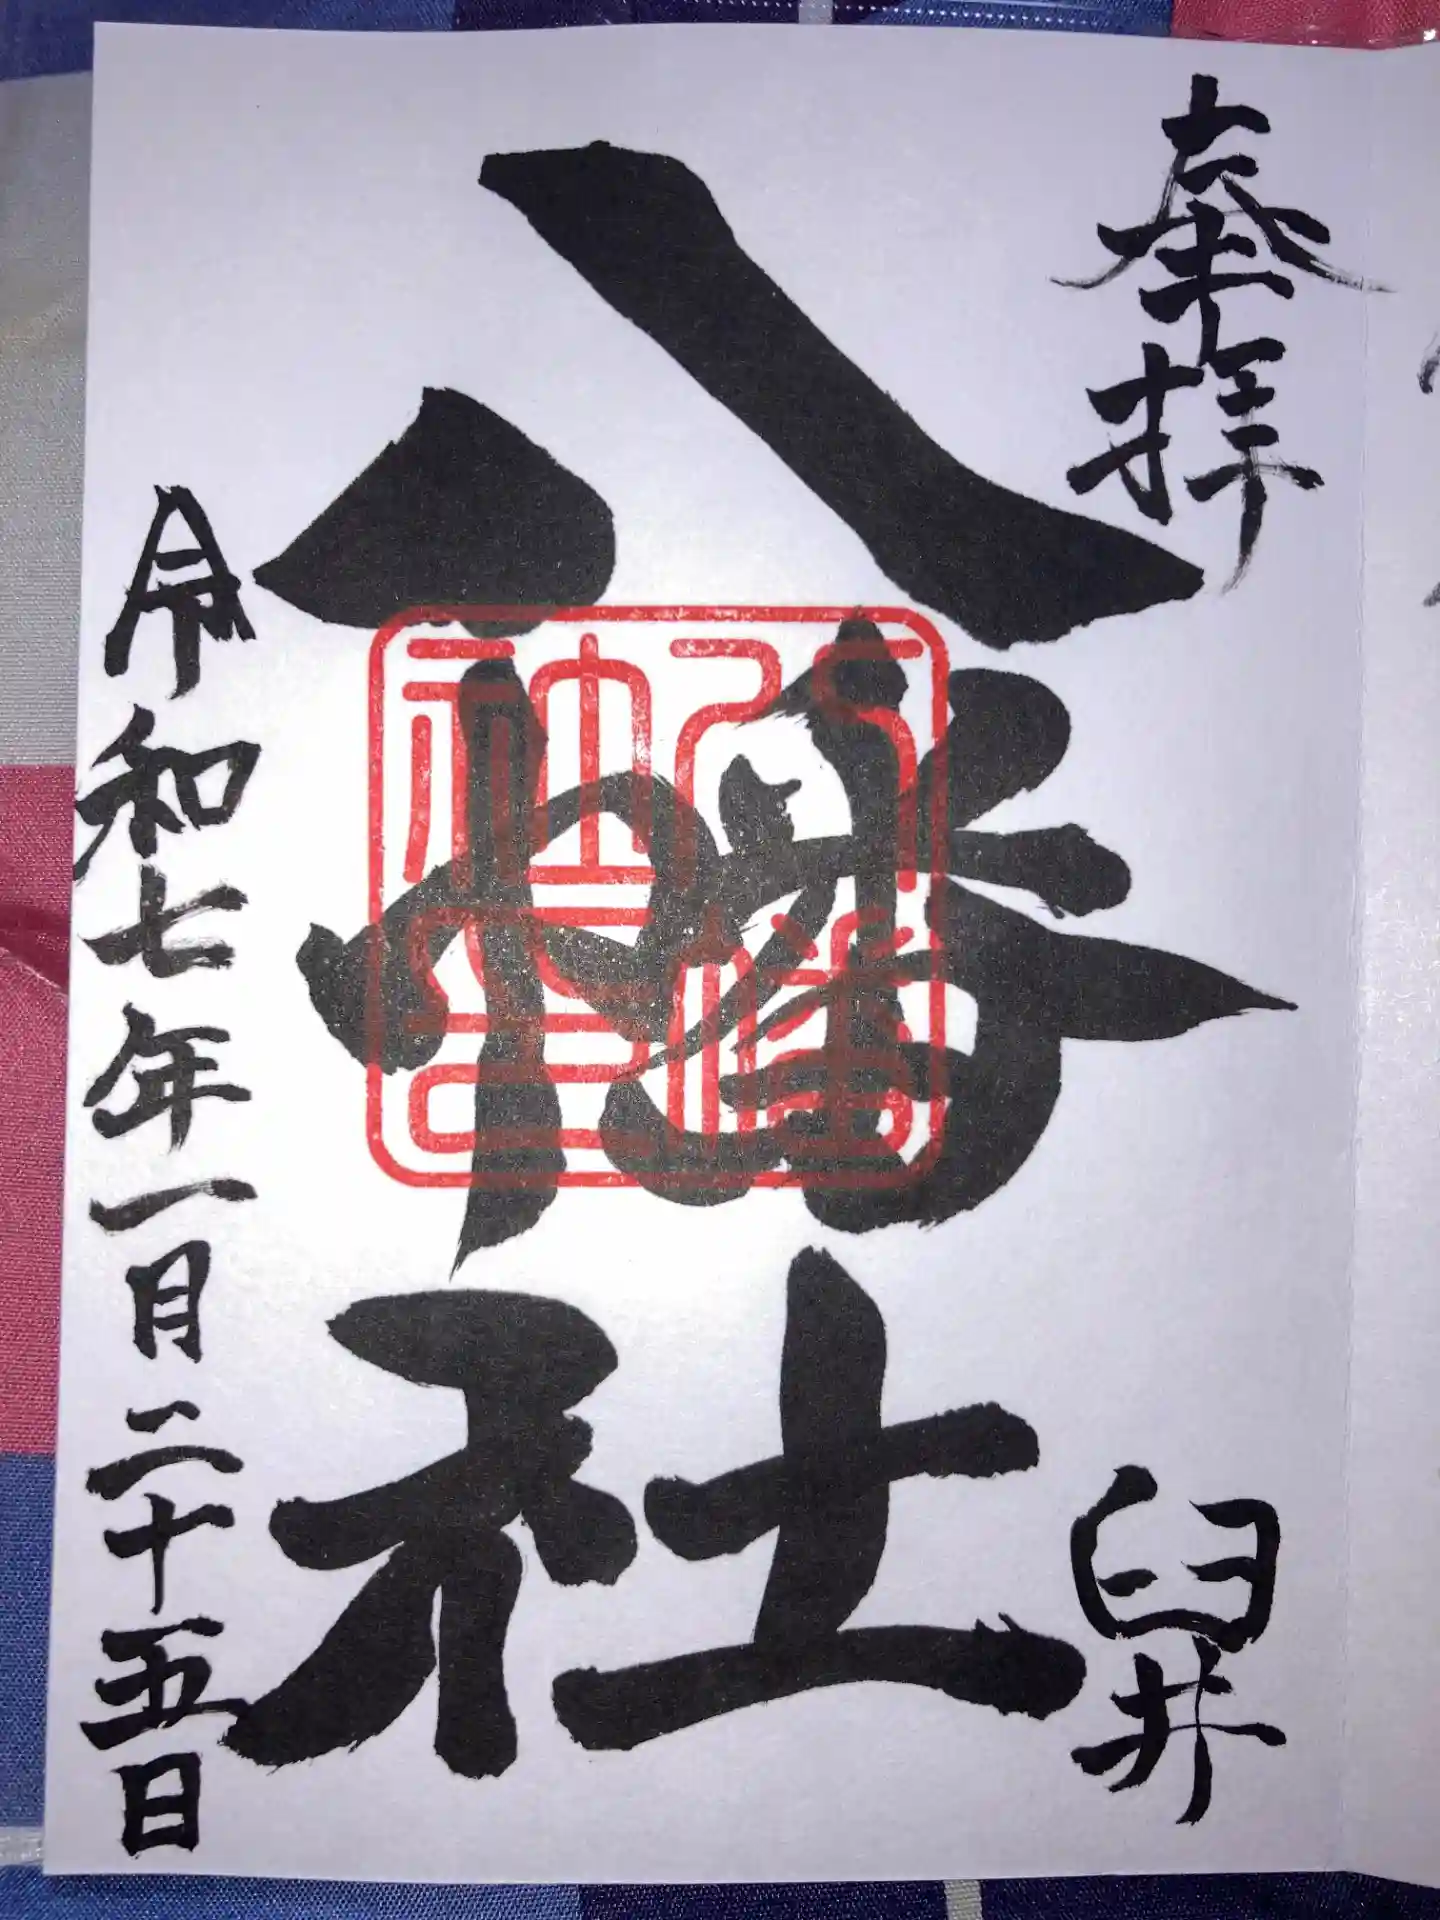 奉拝
臼井
八幡社
八幡社印
令和七年一月二十五日